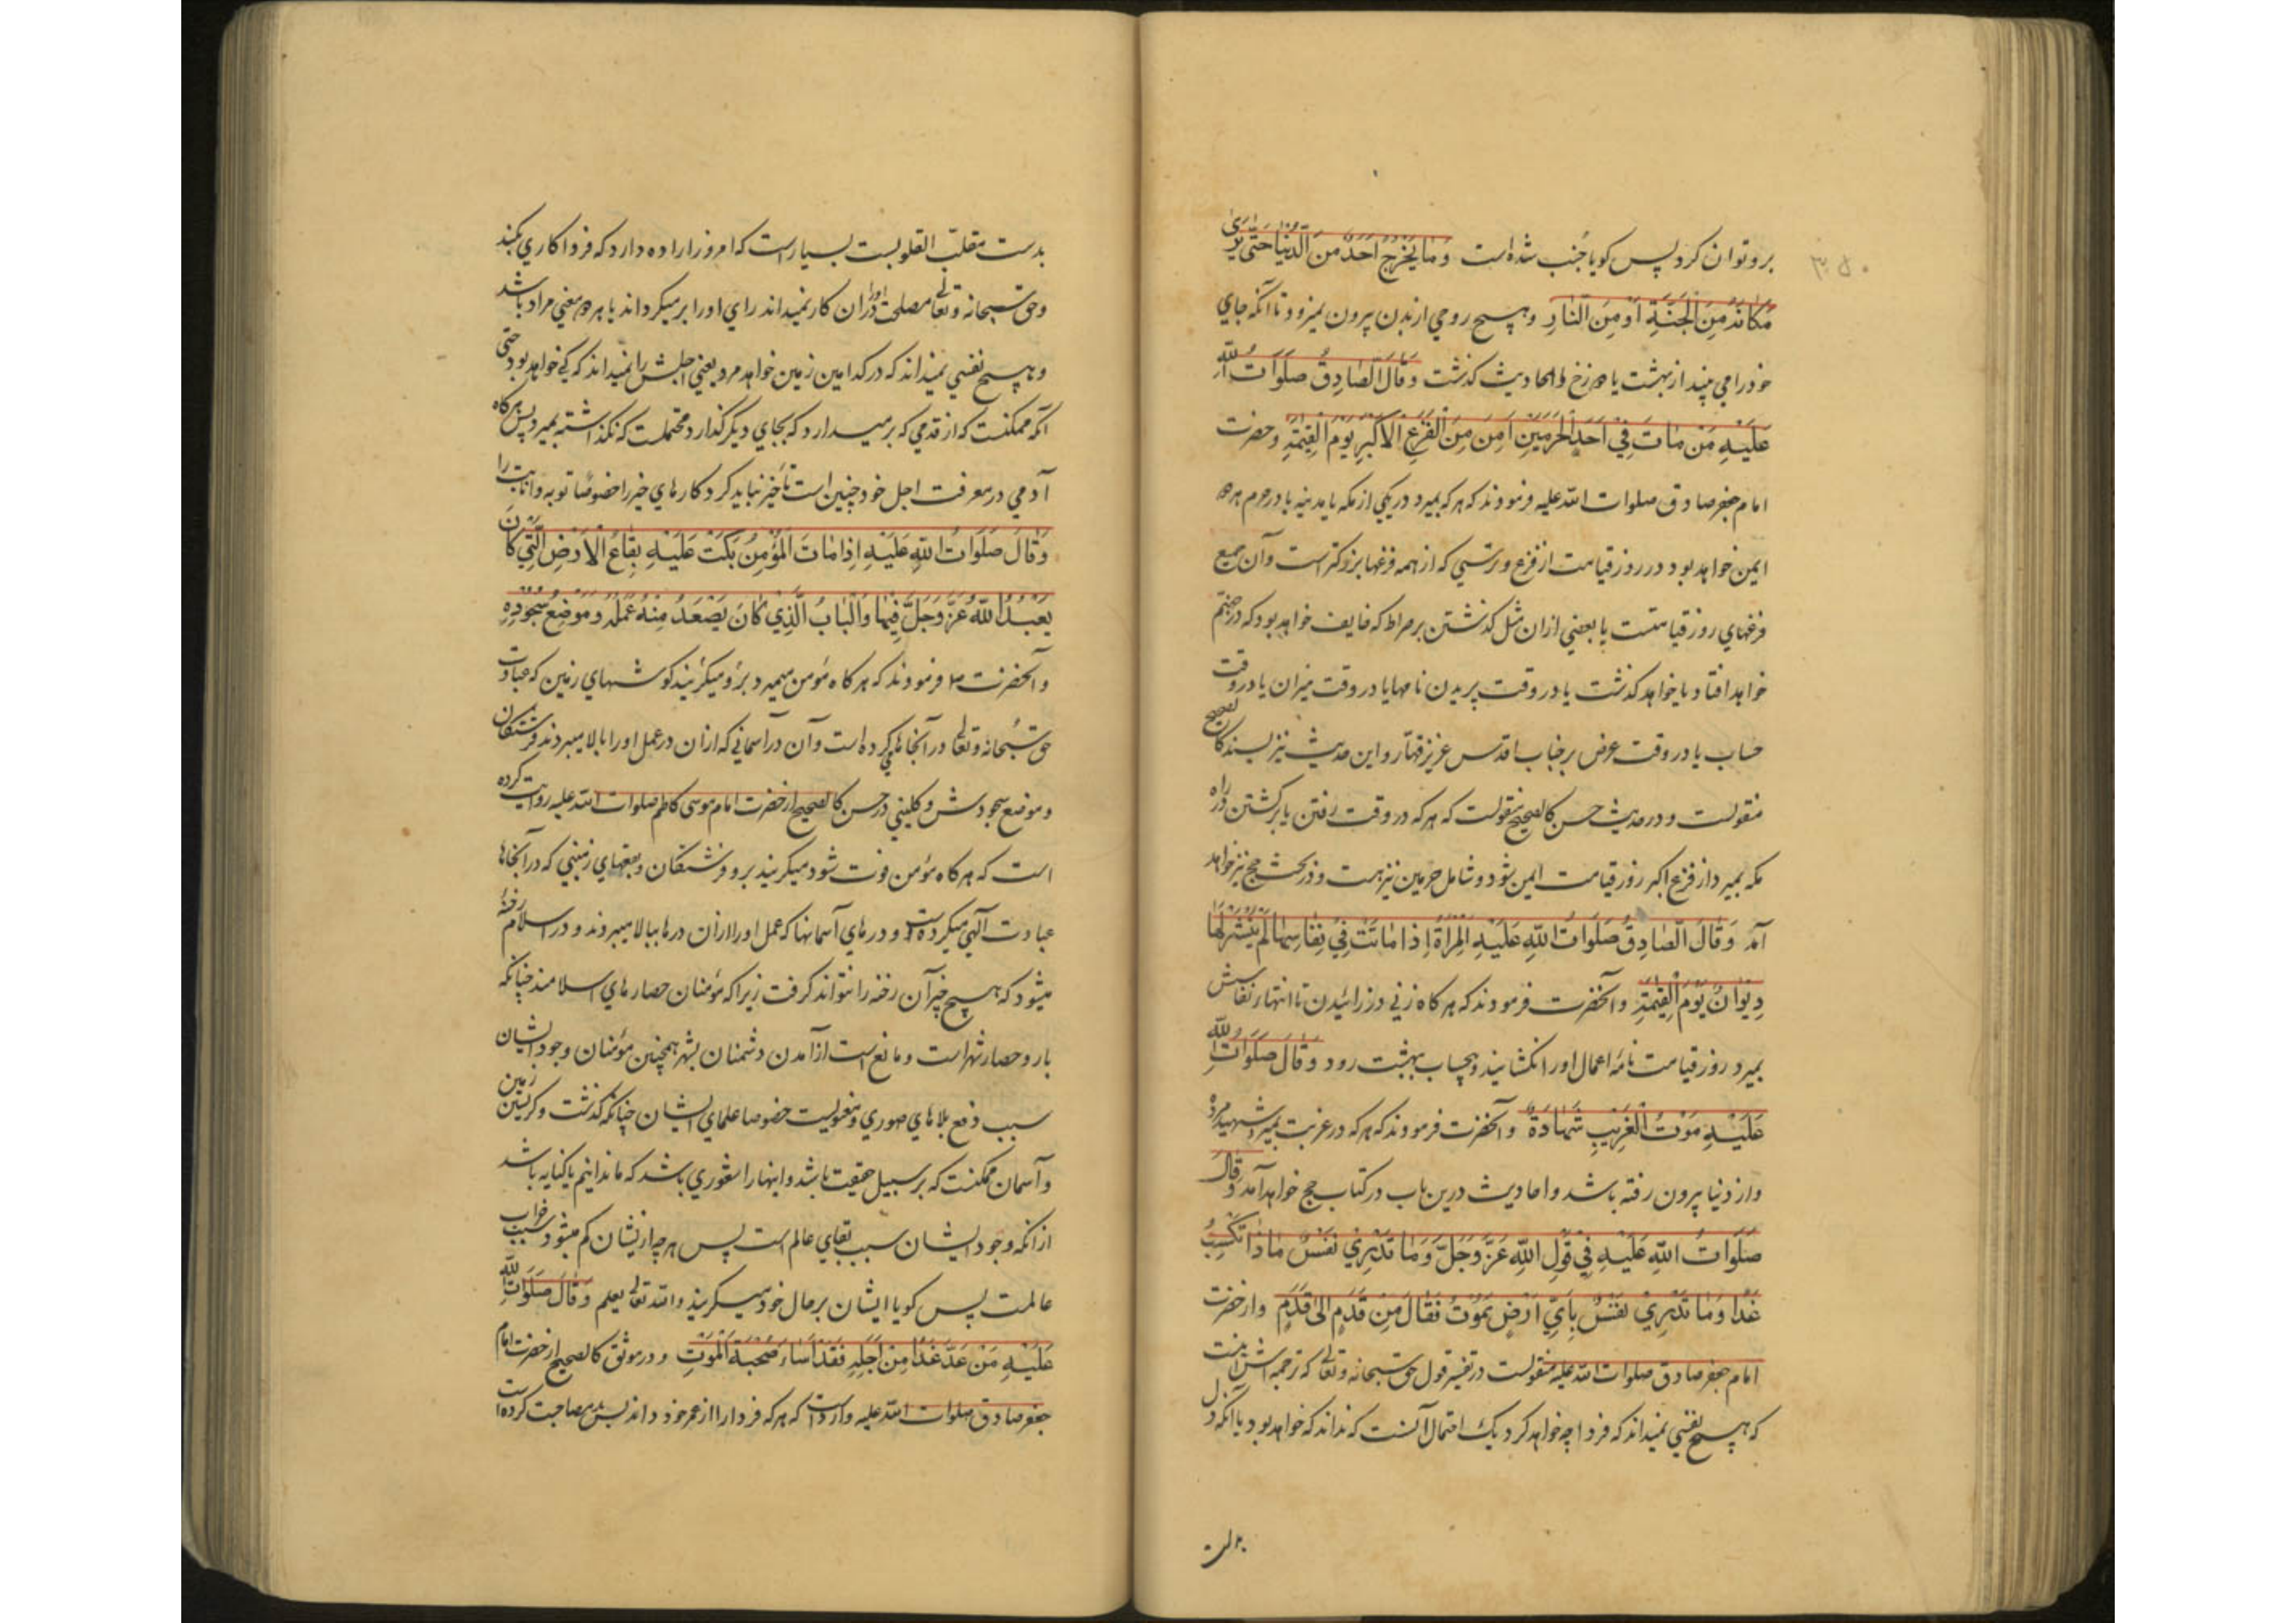 برو توان کرد پس کویا جنب شده است وَمَا يَخْرُجُ اَحَدٌ مِنَ الدُّنْيَا حَتّى يَرَىٰ
مَكَانَهُ مِنَ الْجَنَّةِ اَوْ مِنَ النَّارِ وهیچ روحی از بدن بیرون نمیرود تا آنکه جای
خود را می بیند از بهشت یا دوزخ واحادیث کذشت وَقَالَ الصَّادِقُ صَلَوَاتُ اللّٰهِ
عَلَيْهِ مَنْ مَاتَ فِي اَحَدِ الْحَرَمَيْنِ اَمِنَ مِنَ الْفَزَعِ الْاَكْبَرِ يَوْمَ الْقِيٰمَةِ وحضرت
امام جعفر صادق صلوات الله علیه فرمودند که هر که بمیرد در یکی از مکه یا مدینه یا در حرم هر دو
ایمن خواهد بود در روز قیامت از فزع وترسی که از همه فزعها بزرکتر است وآن جمیع
فزعهای روز قیامتست یا بعضی از آن مثل کذشتن بر صراط که خایف خواهد بود که در جهنم
خواهد افتاد یا خواهد کذشت یا در وقت پریدن نامها یا در وقت میزان یا در وقت
حساب یا در وقت عرض بر جناب اقدس عزیز قهّار واین حدیث نیز بسند کالصحیح
منقولست ودر حدیث حسن کالصحیح منقولست که هر که در وقت رفتن یا برکشتن در راه
مکه بمیرد از فزع اکبر روز قیامت ایمن شود وشامل حرمین نیز هست ودر بحث حج نیز خواهد
آمد وَقَالَ الصَّادِقُ صَلَوَاتُ اللّٰهِ عَلَيْهِ الْمَرْاَةُ اِذَا مَاتَتْ فِي نِفَاسِهَا لَمْ يُنْشَرْ لَهَا
دِيوَانٌ يَوْمَ الْقِيٰمَةِ وآنحضرت فرمودند که هر کاه زنی در زائیدن تا انتهاء نفاسش
بمیرد روز قیامت نامهٔ اعمال اورا نکشایند وبیحساب ببهشت رود وَقَالَ صَلَوَاتُ اللّٰهِ
عَلَيْهِ مَوْتُ الْغَرِيْبِ شَهَادَةٌ وآنحضرت فرمودند که هر که در غربت بمیرد شهید مرده
واز دنیا بیرون رفته باشد واحادیث درین باب در کتاب حج خواهد آمد وَقَالَ
صَلَوَاتُ اللّٰهِ عَلَيْهِ فِي قَوْلِ اللّٰهِ عَزَّ وَجَلَّ وَمَا تَدْرِي نَفْسٌ مَاذَا تَكْسِبُ
غَدًا وَمَا تَدْرِيْ نَفْسٌ بِاَيِّ اَرْضٍ تَمُوْتُ فَقَالَ مِنْ قَدَمٍ اِلىٰ قَدَمٍ واز حضرت
امام جعفر صادق صلوات الله علیه منقولست در تفسیر قول حق سبحانه وتعالی که ترجمه اش اینست
که هیچ نفسی نمیداند که فردا چه خواهد کرد یک احتمال آنست که نداند که خواهد بود یا آنکه دل
بدست مقلّب القلوبست بسیار است که امروز اراده دارد که فردا کاری بکند
وحق سبحانه وتعالی مصلحت اورا در آن کار نمیداند رای اورا بر میکرداند یا هر دو معنی مراد باشد
وهیچ نفسی نمیداند که در کدامین زمین خواهد مرد یعنی اجلش را نمیداند که کی خواهد بود حتی
آنکه ممکنست که از قدمی که بر میدارد که بجای دیکر کذارد محتملست که نکذاشته بمیرد پس هر کاه
آدمی در معرفت اجل خود چنین است تأخیر نباید کرد کارهای خیر را خصوصا توبه وانابت را
وَقَالَ صَلَوَاتُ اللّٰهِ عَلَيْهِ اِذَا مَاتَ الْمُؤْمِنُ بَكَتْ عَلَيْهِ بِقَاعُ الْاَرْضِ الَّتِي كَانَ
يَعْبُدُ اللّٰهَ عَزَّ وَجَلَّ فِيْهَا وَالْبَابُ الَّذِي كَانَ يَصْعَدُ مِنْهُ عَمَلُهُ وَمَوْضِعُ سُجُوْدِهِ
وآنحضرت ص فرمودند که هر کاه مؤمن میمیرد برو میکریند کوشهای زمین که عبادت
حق سبحانه وتعالی در آنجاها می کرده است وآن در آسمانی که ازان در عمل اورا بالا میبردند فرشتکان
وموضع سجودش وکلینی در حسن کالصحیح از حضرت امام موسی کاظم صلوات الله علیه روایت کرده
است که هر کاه مؤمن فوت شود میکریند برو فرشتکان وبقعهای زمینی که در آنجاها
عبادت الهی میکرده است ودرهای آسمانها که عمل اورا ازان درها ببالا میبردند ودر اسلام رخنهٔ
میشود که هیچ چیز آن رخنه را نتواند کرفت زیرا که مؤمنان حصارهای اسلامند چنانکه
بارو حصار شهر است ومانع است از آمدن دشمنان بشهر همچنین مؤمنان وجود ایشان
سبب دفع بلاهای صوری ومعنویست خصوصا علمای ایشان چنانکه کذشت وکریستن زمین
وآسمان ممکنست که بر سبیل حقیقت باشد واینها را شعوری باشد که ما ندانیم یا کنایه باشد
از آنکه وجود ایشان سبب بقای عالم است پس هر چه از یشان کم میشود سبب خراب
عالمست پس کویا ایشان بر حال خود میکریند والله تعالی یعلم وَقَالَ صَلَوَاتُ اللّٰهِ
عَلَيْهِ مَنْ عَدَّ غَدًا مِنْ اَجَلِهِ فَقَدْ اَسَاءَ صُحْبَةَ الْمَوْتِ ودر موثق کالصحیح از حضرت امام
جعفر صادق صلوات الله علیه وارد است که هر که فردا را از عمر خود داند پس بد مصاحبت کرده است